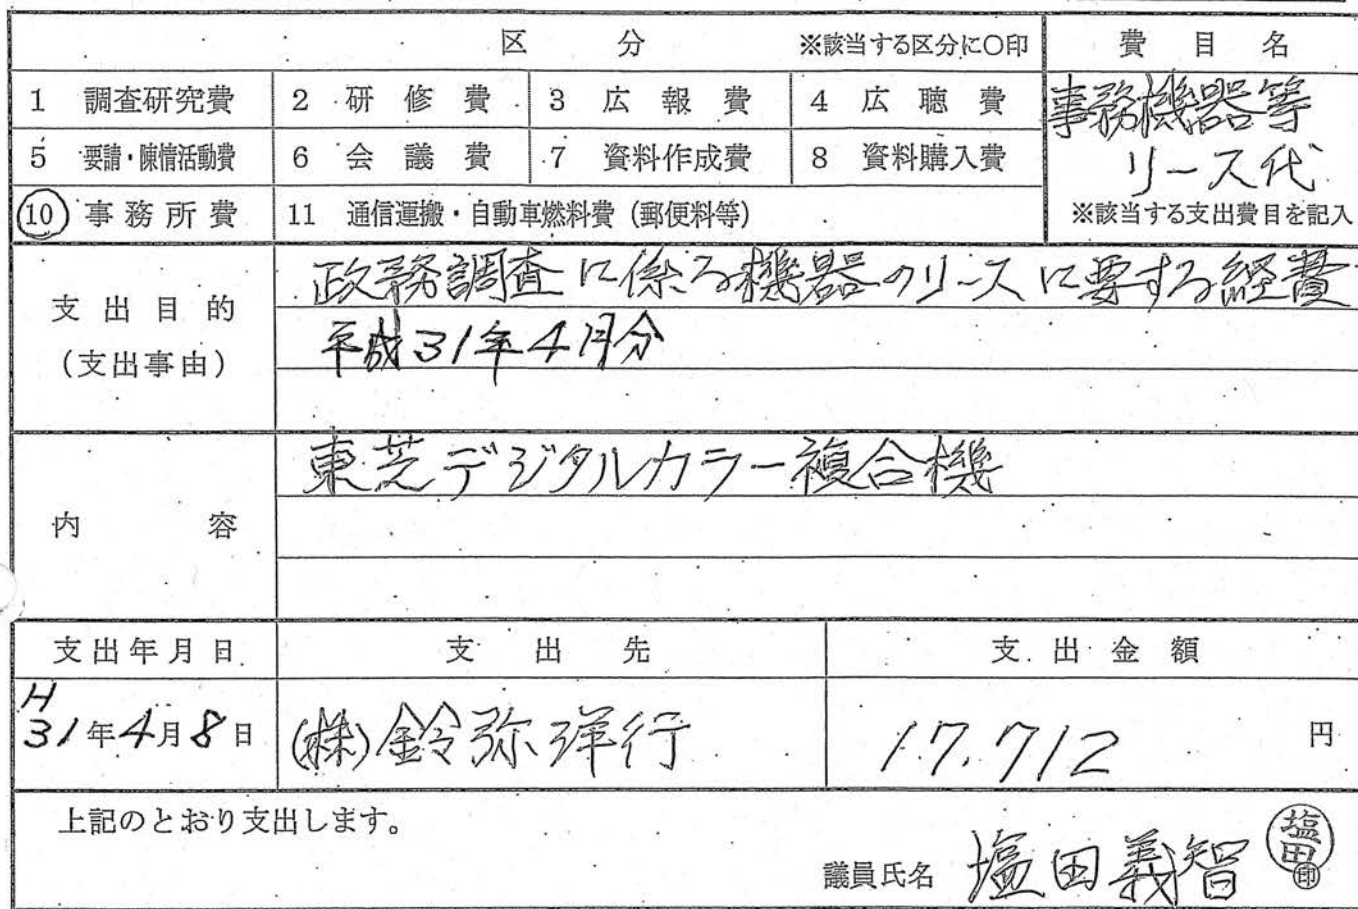 区 分 ※該当する区分に○印 費目名
1 調査研究費 2 研修費 3 広報費 4 広聴費 事務機器等
5 要請・陳情活動費 6 会議費 7 資料作成費 8 資料購入費 リース代
10 事務所費 11 通信運搬・自動車燃料費(郵便料等) ※該当する支出費目を記入
支出目的
(支出事由)
政務調査に係る機器のリースに要する経費
平成31年4月分
内容
東芝デジタルカラー複合機
支出年月日 支出先 支出金額
H
31年4月8日 (株)鈴弥洋行 17.712 円
上記のとおり支出します。
議員氏名 塩田義智 塩田印